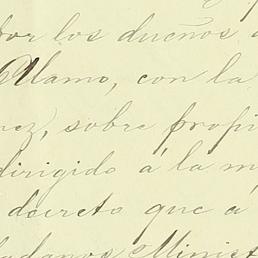 por los dueños
Alamo, con la
nez, sobre propi
dirigido á la m
decreto que á
dadanos Minist